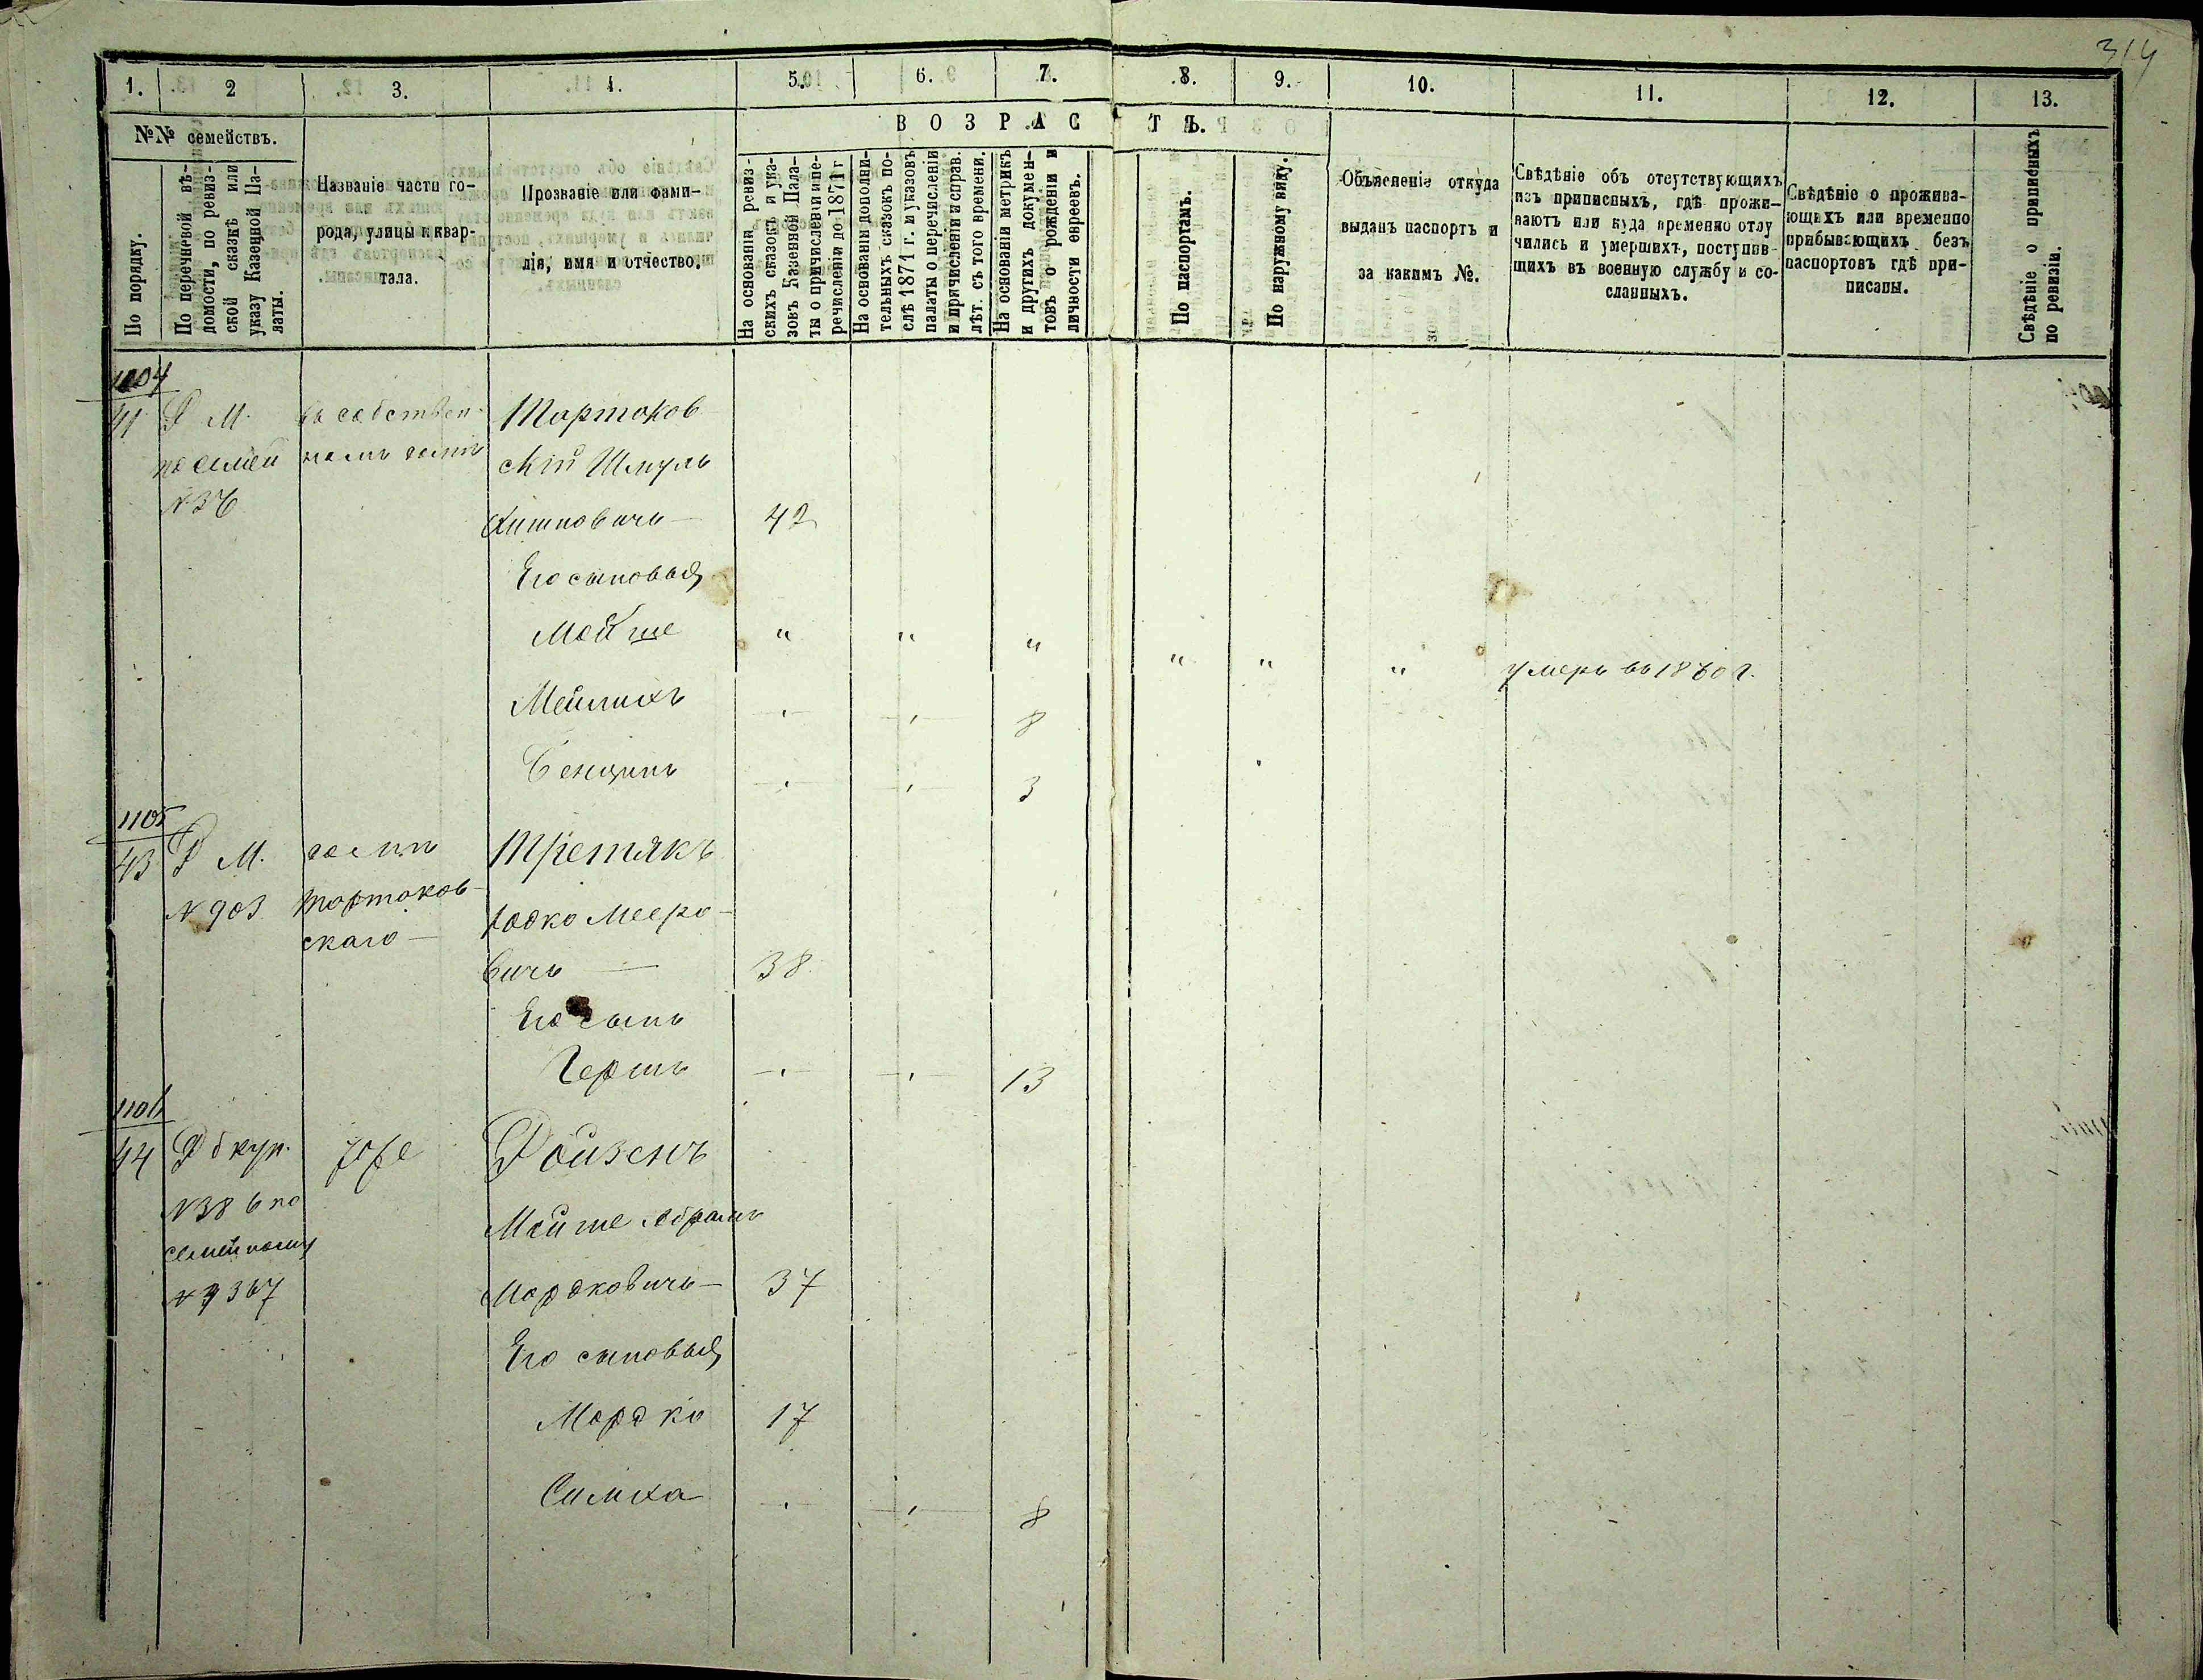 314
1. 2 3. 4. 5. 6. 7. 8. 9. 10. 11. 12. 13.
№№ семействъ.
ВОЗРАСТЪ.
По порядку.
По перечневой вѣ-
домости, по ревиз-
ской сказкѣ или
указу Казенной Па-
латы.
Названіе части го-
рода, улицы и квар-
тала.
Прозваніе или фами-
лія, имя и отчество.
На основаніи ревиз-
скихъ сказокъ и ука-
зовъ Казенной Пала-
ты о причисленіи и пе-
речисленіи до 1871 г
На основаніи дополни-
тельныхъ сказокъ по-
слѣ 1871 г. и указовъ
палаты о перечисленіи
и причисленіи и справ.
лѣт. съ того времени.
На основаніи метрикъ
и другихъ докумен-
товъ о рожденіи и
личности евреевъ.
По паспортамъ.
По наружному виду.
Объясненіе откуда
выданъ паспортъ и
за какимъ №.
Свѣдѣніе объ отсутствующихъ
изъ приписныхъ, гдѣ прожи-
ваютъ или куда временно отлу
чились и умершихъ, поступив-
щихъ въ военную службу и со-
сланныхъ.
Свѣдѣніе о прожива-
ющихъ или временно
прибывающихъ безъ
паспортовъ гдѣ при-
писаны.
Свѣдѣніе о приписныхъ
по ревизіи.
1104
41 Р М. въ собствен- Тортаков
по семей номъ домѣ скій Шмуль
№ 36
Хитновичъ — 42
Его сыновья
Мойше " " " " " " умеръ въ 1860 г.
Мейлихъ 8
Бенцинъ 3
1105
43 Р М. домъ Третякъ
№ 903 Тортаков-
скаго — Іодко Мееро-
вичъ — 38
Его сынъ
Гершъ 13
1106
44 Р б куп. Ройзенъ
№ 386 по Мойше Абрамъ
семейному
№ 367 Мордковичъ — 37
Его сыновья
Мордко 17
Симха 8